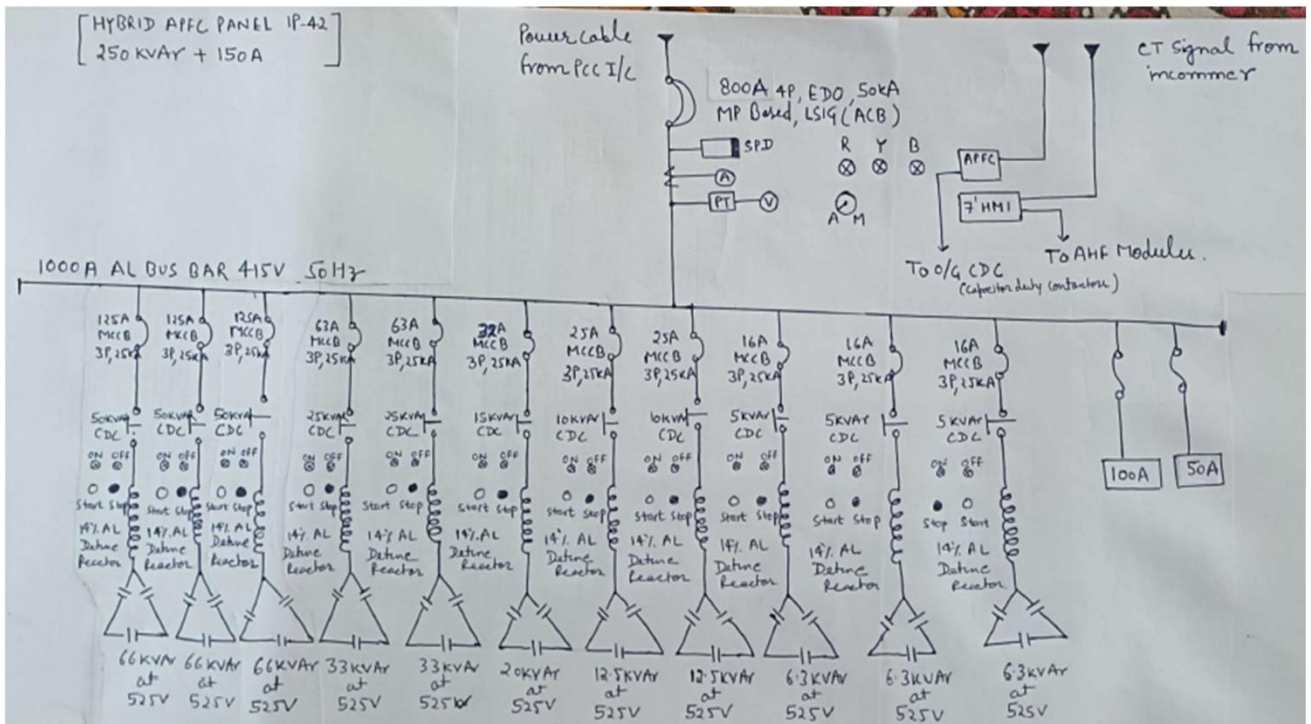 HYBRID APFC PANEL IP-42
250 KVAr + 150A
Power cable
from PCC I/C
800A 4P, EDO, 50kA
MP Based, LSIG (ACB)
SPD
A
PT
V
R Y B
A M
CT Signal from
incommer
APFC
7" HMI
To O/G CDC
(Capacitor duty contactors)
To AHF Modules.
1000A AL BUS BAR 415V 50Hz
125A
MCCB
3P, 25kA
50KVAr
CDC
ON OFF
Start Stop
14% AL
Detune
Reactor
66KVAr
at
525V
125A
MCCB
3P, 25kA
50KVAr
CDC
ON OFF
Start Stop
14% AL
Detune
Reactor
66KVAr
at
525V
125A
MCCB
3P, 25kA
50KVAr
CDC
ON OFF
Start Stop
14% AL
Detune
Reactor
66KVAr
at
525V
63A
MCCB
3P, 25kA
25KVAr
CDC
ON OFF
Start Stop
14% AL
Detune
Reactor
33KVAr
at
525V
63A
MCCB
3P, 25kA
25KVAr
CDC
ON OFF
Start Stop
14% AL
Detune
Reactor
33KVAr
at
525V
32A
MCCB
3P, 25kA
15KVAr
CDC
ON OFF
Start Stop
14% AL
Detune
Reactor
20KVAr
at
525V
25A
MCCB
3P, 25kA
10KVAr
CDC
ON OFF
Start Stop
14% AL
Detune
Reactor
12.5KVAr
at
525V
25A
MCCB
3P, 25kA
10KVAr
CDC
ON OFF
Start Stop
14% AL
Detune
Reactor
12.5KVAr
at
525V
16A
MCCB
3P, 25kA
5KVAr
CDC
ON OFF
Start Stop
14% AL
Detune
Reactor
6.3KVAr
at
525V
16A
MCCB
3P, 25kA
5KVAr
CDC
ON OFF
Start Stop
14% AL
Detune
Reactor
6.3KVAr
at
525V
16A
MCCB
3P, 25kA
5KVAr
CDC
ON OFF
Stop Start
14% AL
Detune
Reactor
6.3KVAr
at
525V
100A
50A